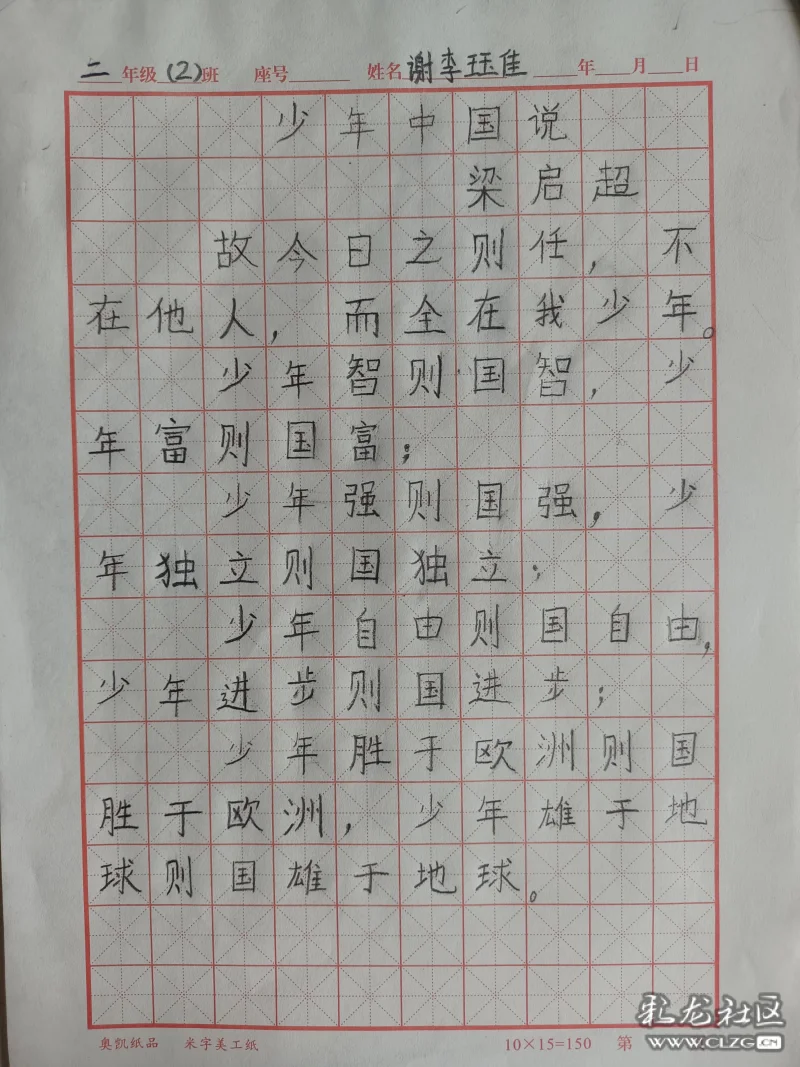 二年级(2)班 座号 姓名谢李珏佳 年 月 日
少年中国说
梁启超
故今日之则任,不
在他人,而全在我少年。
少年智则国智,少
年富则国富;
少年强则国强,少
年独立则国独立;
少年自由则国自由,
少年进步则国进步;
少年胜于欧洲则国
胜于欧洲,少年雄于地
球则国雄于地球。
奥凯纸品 米字美工纸 10×15=150 第
彩龙社区
WWW.CLZG.CN